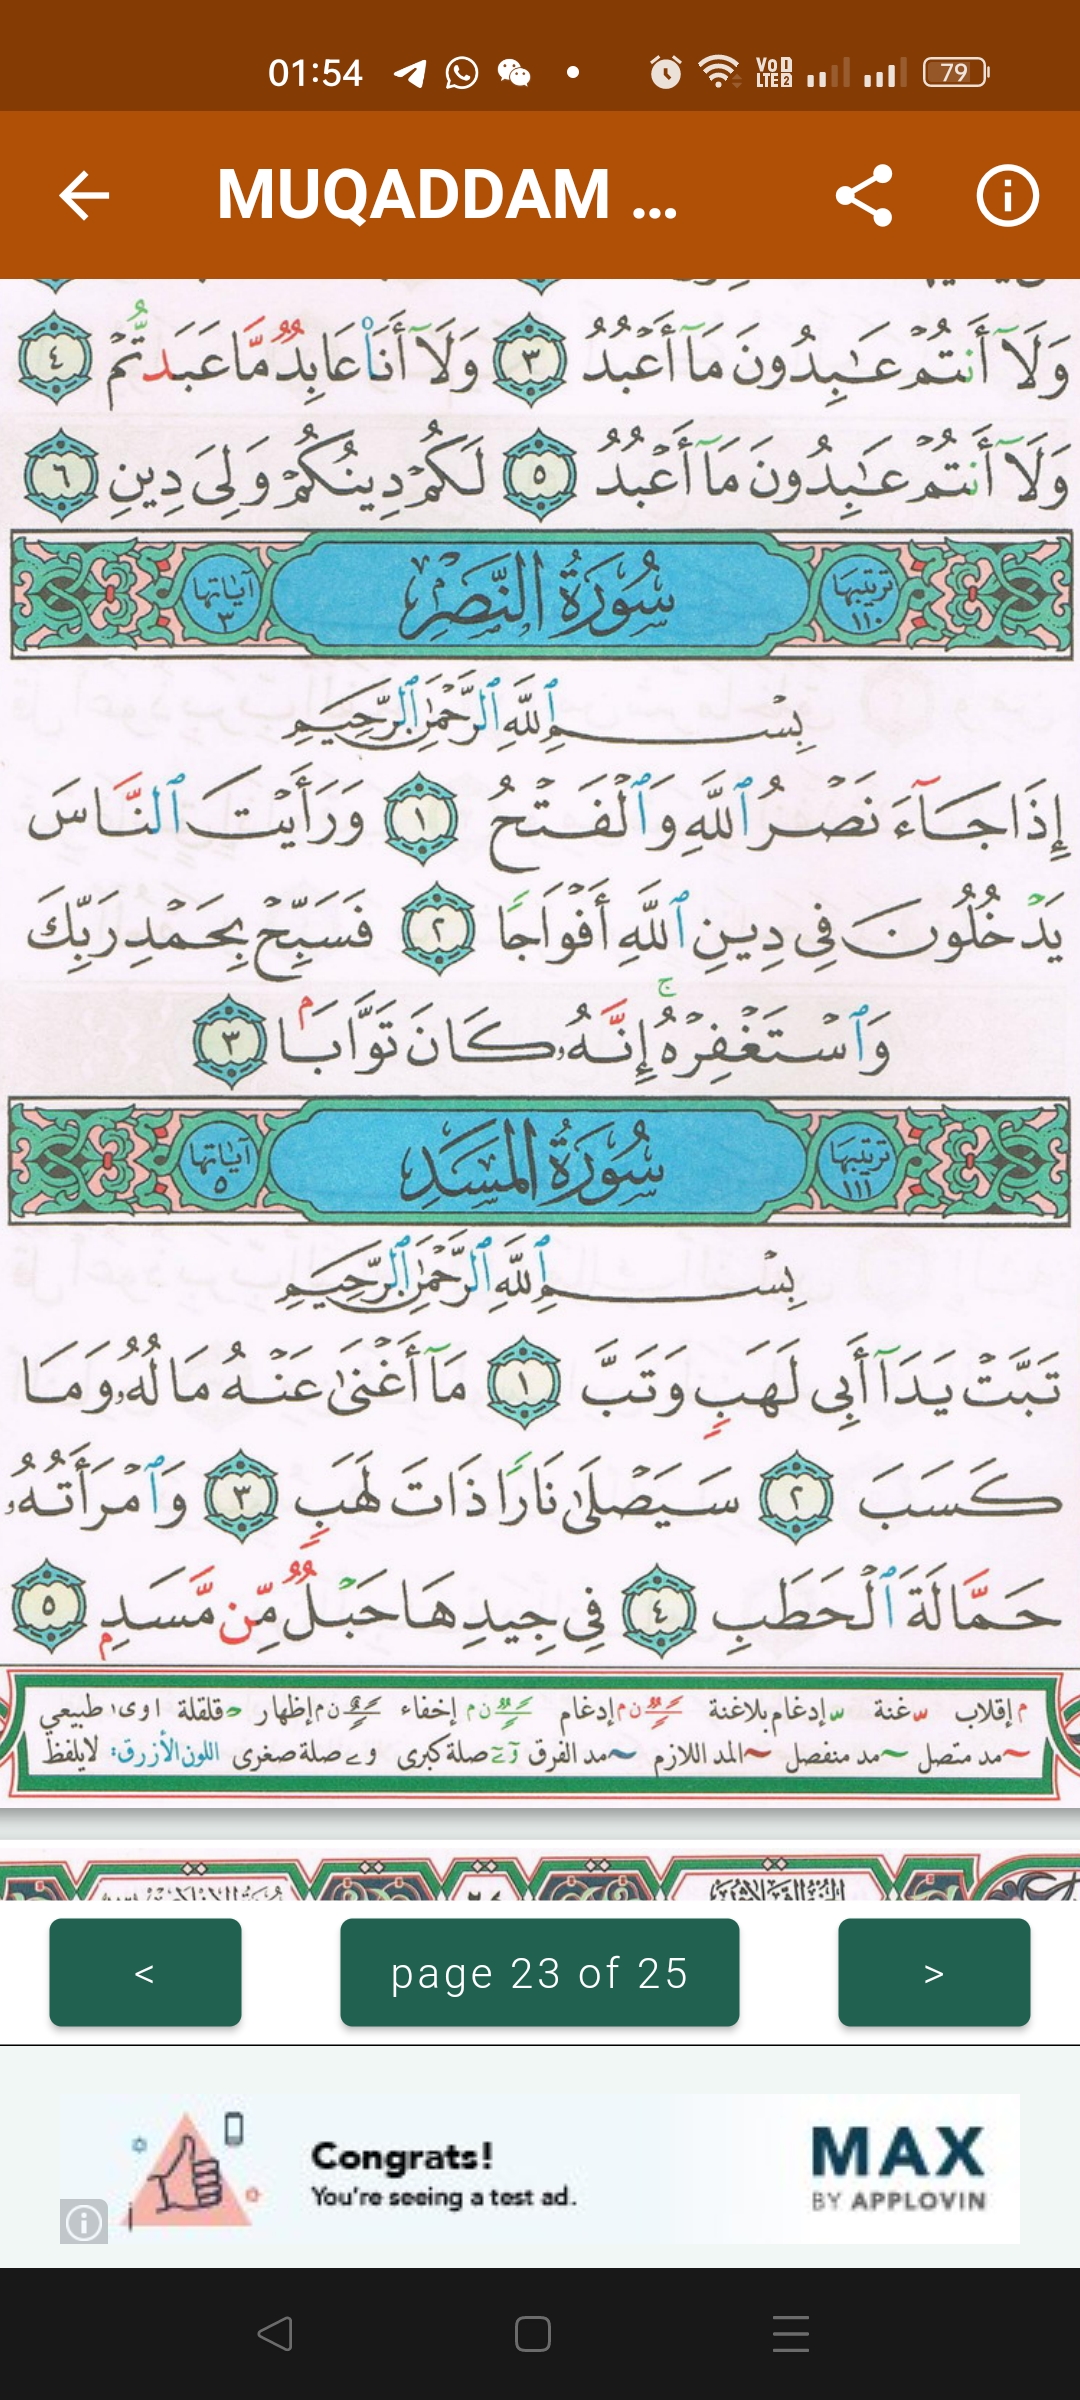 01:54
VoD LTE2
79
MUQADDAM ...
وَلَآ أَنتُمْ عَـٰبِدُونَ مَآ أَعْبُدُ ٣ وَلَآ أَنَا۠ عَابِدٌ مَّا عَبَدتُّمْ ٤
وَلَآ أَنتُمْ عَـٰبِدُونَ مَآ أَعْبُدُ ٥ لَكُمْ دِينُكُمْ وَلِىَ دِينِ ٦
ترتيبها ١١٠ سُورَةُ النَّصْرِ آياتها ٣
بِسْمِ ٱللَّهِ ٱلرَّحْمَـٰنِ ٱلرَّحِيمِ
إِذَا جَآءَ نَصْرُ ٱللَّهِ وَٱلْفَتْحُ ١ وَرَأَيْتَ ٱلنَّاسَ
يَدْخُلُونَ فِى دِينِ ٱللَّهِ أَفْوَاجًا ٢ فَسَبِّحْ بِحَمْدِ رَبِّكَ
وَٱسْتَغْفِرْهُ ۚ إِنَّهُۥ كَانَ تَوَّابًۢا ٣
ترتيبها ١١١ سُورَةُ المَسَدِ آياتها ٥
بِسْمِ ٱللَّهِ ٱلرَّحْمَـٰنِ ٱلرَّحِيمِ
تَبَّتْ يَدَآ أَبِى لَهَبٍ وَتَبَّ ١ مَآ أَغْنَىٰ عَنْهُ مَالُهُۥ وَمَا
كَسَبَ ٢ سَيَصْلَىٰ نَارًا ذَاتَ لَهَبٍ ٣ وَٱمْرَأَتُهُۥ
حَمَّالَةَ ٱلْحَطَبِ ٤ فِى جِيدِهَا حَبْلٌ مِّن مَّسَدٍۭ ٥
م إقلاب غنة إدغام بلاغنة ن م إدغام ن م إخفاء ن م إظهار قلقلة ا و ى طبيعي
مد متصل مد منفصل المد اللازم مد الفرق صلة كبرى و ے صلة صغرى اللون الأزرق: لايلفظ
<
page 23 of 25
>
Congrats!
You're seeing a test ad.
MAX
BY APPLOVIN